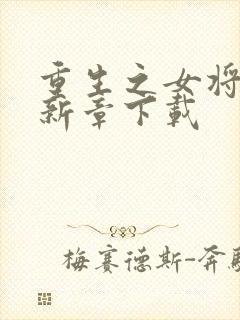 重生之女将
新章下载
梅赛德斯-奔